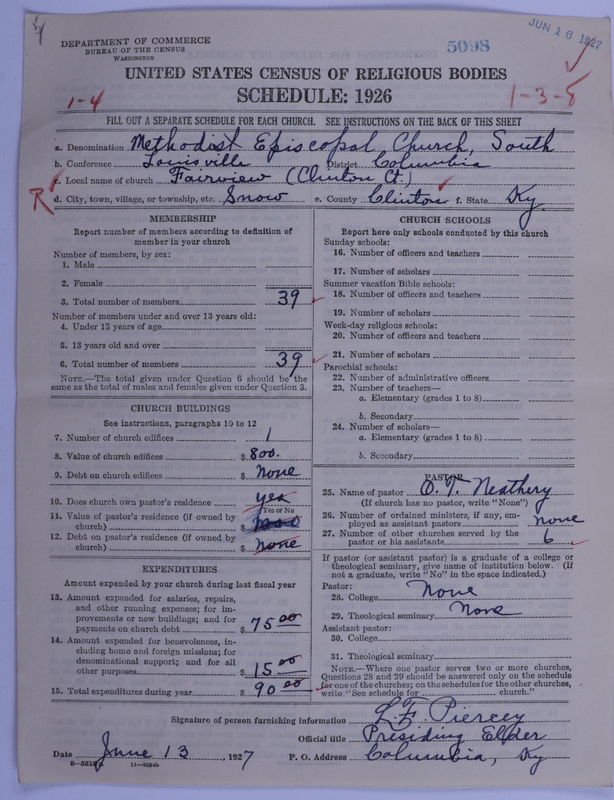 JUN 16 1927
DEPARTMENT OF COMMERCE
BUREAU OF THE CENSUS
WASHINGTON
5098
UNITED STATES CENSUS OF RELIGIOUS BODIES
SCHEDULE: 1926
1-4
1-3-8
FILL OUT A SEPARATE SCHEDULE FOR EACH CHURCH. SEE INSTRUCTIONS ON THE BACK OF THIS SHEET
a. Denomination Methodist Episcopal Church, South
b. Conference Louisville District Columbia
c. Local name of church Fairview (Clinton Ct.)
R d. City, town, village, or township, etc. Snow e. County Clinton f. State Ky
MEMBERSHIP
Report number of members according to definition of
member in your church
Number of members, by sex:
1. Male
2. Female
3. Total number of members 39
Number of members under and over 13 years old:
4. Under 13 years of age
5. 13 years old and over
6. Total number of members 39
NOTE.—The total given under Question 6 should be the
same as the total of males and females given under Question 3.
CHURCH BUILDINGS
See instructions, paragraphs 10 to 12
7. Number of church edifices 1
8. Value of church edifices $ 800.
9. Debt on church edifices $ none
10. Does church own pastor's residence yes
Yes or No
11. Value of pastor's residence (if owned by
church) $
12. Debt on pastor's residence (if owned by
church) $ none
EXPENDITURES
Amount expended by your church during last fiscal year
13. Amount expended for salaries, repairs,
and other running expenses; for im-
provements or new buildings; and for
payments on church debt $ 75 00
14. Amount expended for benevolences, in-
cluding home and foreign missions; for
denominational support; and for all
other purposes $ 15 00
15. Total expenditures during year $ 90 00
CHURCH SCHOOLS
Report here only schools conducted by this church
Sunday schools:
16. Number of officers and teachers
17. Number of scholars
Summer vacation Bible schools:
18. Number of officers and teachers
19. Number of scholars
Week-day religious schools:
20. Number of officers and teachers
21. Number of scholars
Parochial schools:
22. Number of administrative officers
23. Number of teachers—
a. Elementary (grades 1 to 8)
b. Secondary
24. Number of scholars—
a. Elementary (grades 1 to 8)
b. Secondary
PASTOR
25. Name of pastor O. T. Neathery
(If church has no pastor, write "None")
26. Number of ordained ministers, if any, em-
ployed as assistant pastors none
27. Number of other churches served by the
pastor or his assistants 6
If pastor (or assistant pastor) is a graduate of a college or
theological seminary, give name of institution below. (If
not a graduate, write "No" in the space indicated.)
Pastor:
28. College None
29. Theological seminary None
Assistant pastor:
30. College
31. Theological seminary
NOTE.—Where one pastor serves two or more churches,
Questions 28 and 29 should be answered only on the schedule
for one of the churches; on the schedules for the other churches,
write "See schedule for church."
Signature of person furnishing information L. F. Piercey
Official title Presiding Elder
Date June 13, 1927 P. O. Address Columbia, Ky